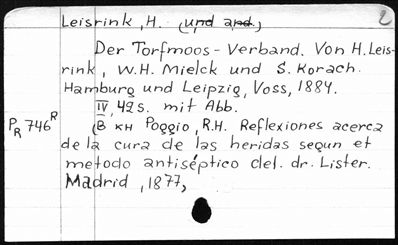 Leisrink, H. (und and.)
2
Der Torfmoos-Verband. Von H. Leis-
rink, W.H. Mielck und S. Korach.
Hamburg und Leipzig, Voss, 1884.
IV, 42 s. mit Abb.
PR 746 R
(В кн Poggio, R.H. Reflexiones acerca
de la cura de las heridas segun et
metodo antiséptico del. dr. Lister.
Madrid, 1877,